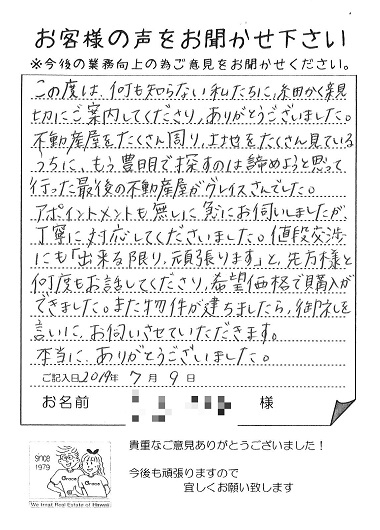 お客様の声をお聞かせ下さい
※今後の業務向上の為ご意見をお聞かせください。
この度は、何も知らない私たちに、細かく親
切にご案内してくださり、ありがとうございました。
不動産屋をたくさん周り、よせをたくさん見ている
うちに、もう豊明で探すのは諦めようと思って
行った最後の不動産屋がグレイスさんでした。
アポイントメントも無しに急にお伺いしましたが、
丁寧に対応してくださいました。値段交渉
にも「出来る限り、頑張ります」と、先方様と
何度もお話してくださり、希望価格で購入が
できました。また物件が建ちましたら、御礼を
言いに、お伺いさせていただきます。
本当に、ありがとうございました。
ご記入日 2019年 7月 9日
お名前 様
since
1979
Grace
Grace
We treat Real Estate of Hawaii
貴重なご意見ありがとうございました！
今後も頑張りますので
宜しくお願い致します